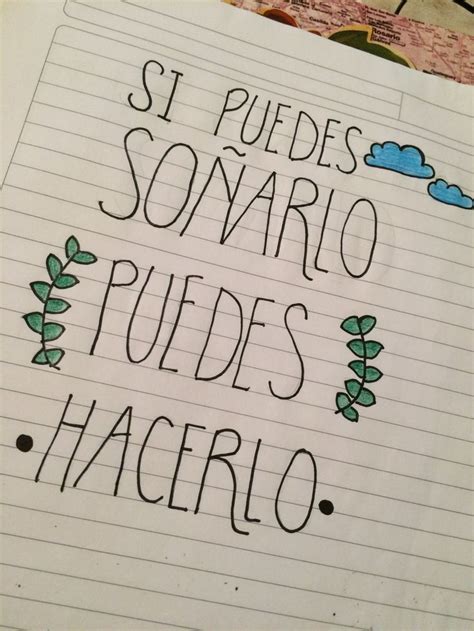 SI PUEDES
SOÑARLO
PUEDES
•HACERLO•